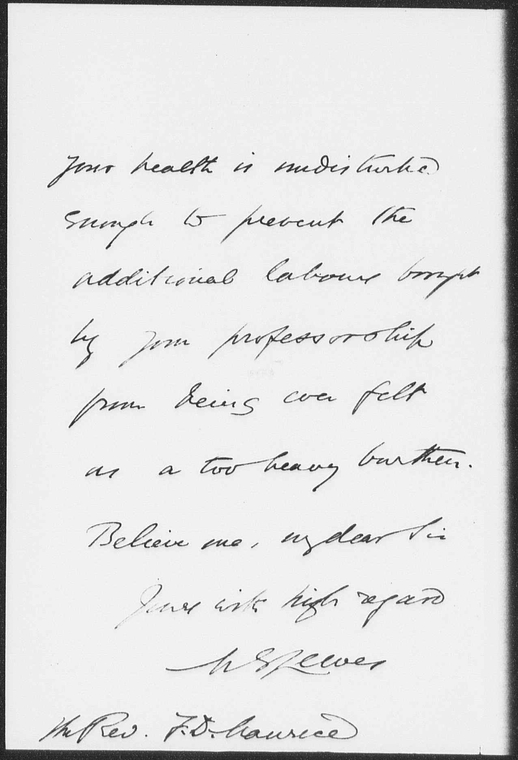 your health is undisturbed
enough to prevent the
additional labours brought
by your professorship
from being ever felt
as a too heavy burthen.
Believe me, my dear Sir
Yours with high regard
The Rev. F.D. Maurice